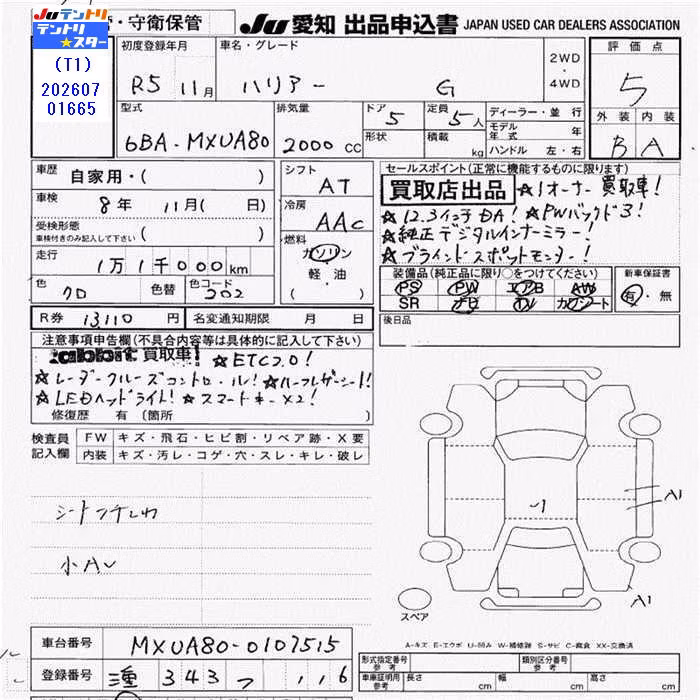 Ju テントリ
テントリ☆スター
(T1)
202607
01665
・守衛保管
Ju 愛知 出品申込書 JAPAN USED CAR DEALERS ASSOCIATION
初度登録年月
R5 11月
車名・グレード
ハリアー G
2WD
・
4WD
評価点
5
外装 内装
B A
型式
6BA-MXUA80
排気量
2000 CC
ドア 5
形状
定員 5人
積載 kg
ディーラー・並行
モデル年式 年
ハンドル 左・右
車歴 自家用・( )
車検 8年 11月( 日)
受検形態
車検付きのみ記入して下さい ( )
走行 1万1千000km
色 クロ 色替 色コード 202
R券 13,110円 名変通知期限 月 日
シフト AT
冷房 AAC
燃料
ガソリン
軽・油
( )
セールスポイント(正常に機能するものに限ります)
買取店出品 ★1オーナー買取車!
★12.3インチDA! ★PWバックドア!
★純正デジタルインナーミラー!
★ブラインドスポットモニター!
装備品(純品品に限り○をつけてください)
PS PW エアB AW
SR ナビ TV カワシート
新車保証書
有・無
後日品
注意事項申告欄(不具合内容等は具体的に記入して下さい)
買取車! ★ETC2.0!
★レーダークルーズコントロール! ★ハーフレザーシート!
★LEDヘッドライト! ★スマートキーX2!
修復歴 有(箇所 )
検査員記入欄
FW キズ・飛石・ヒビ割・リペア跡・X要
内装 キズ・汚レ・コゲ・穴・スレ・キレ・破レ
シートフチしわ
小AU
A1
A1
スペア
A-キズ E-エクボ U-凹み W-補修跡 S-サビ C-腐食 XX-交換済
車台番号 MXUA80-0107515
登録番号 343 つ ・116
形式指定番号 参考
類別区分番号 参考
車庫証明用 参考 長さ cm 幅 cm 高さ cm